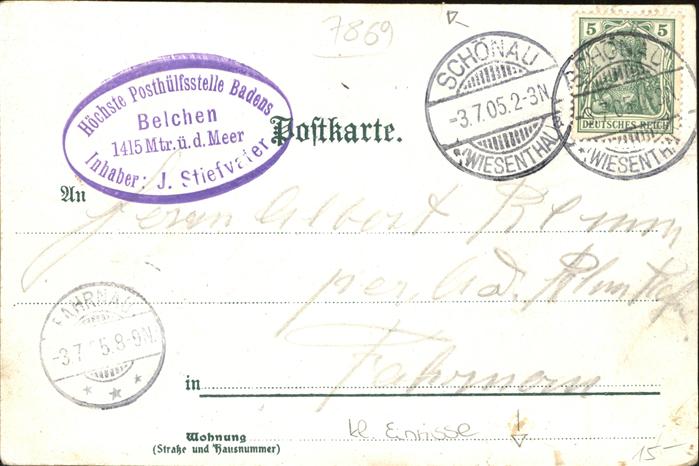 7869
5 5
DEUTSCHES REICH
SCHÖNAU
-3.7.05.2-3N
*(WIESENTHAL)*
SCHÖNAU
*(WIESENTHAL)
Höchste Posthülfsstelle Badens
Belchen
1415 Mtr. ü. d. Meer
Inhaber: J. Stiefvater
Postkarte.
An
Herrn Albert
per Ad.
Fahrnau
FAHRNAU
-3.7.05.8-9N.
in
Wohnung
(Straße und Hausnummer)
kl. Einrisse
15-